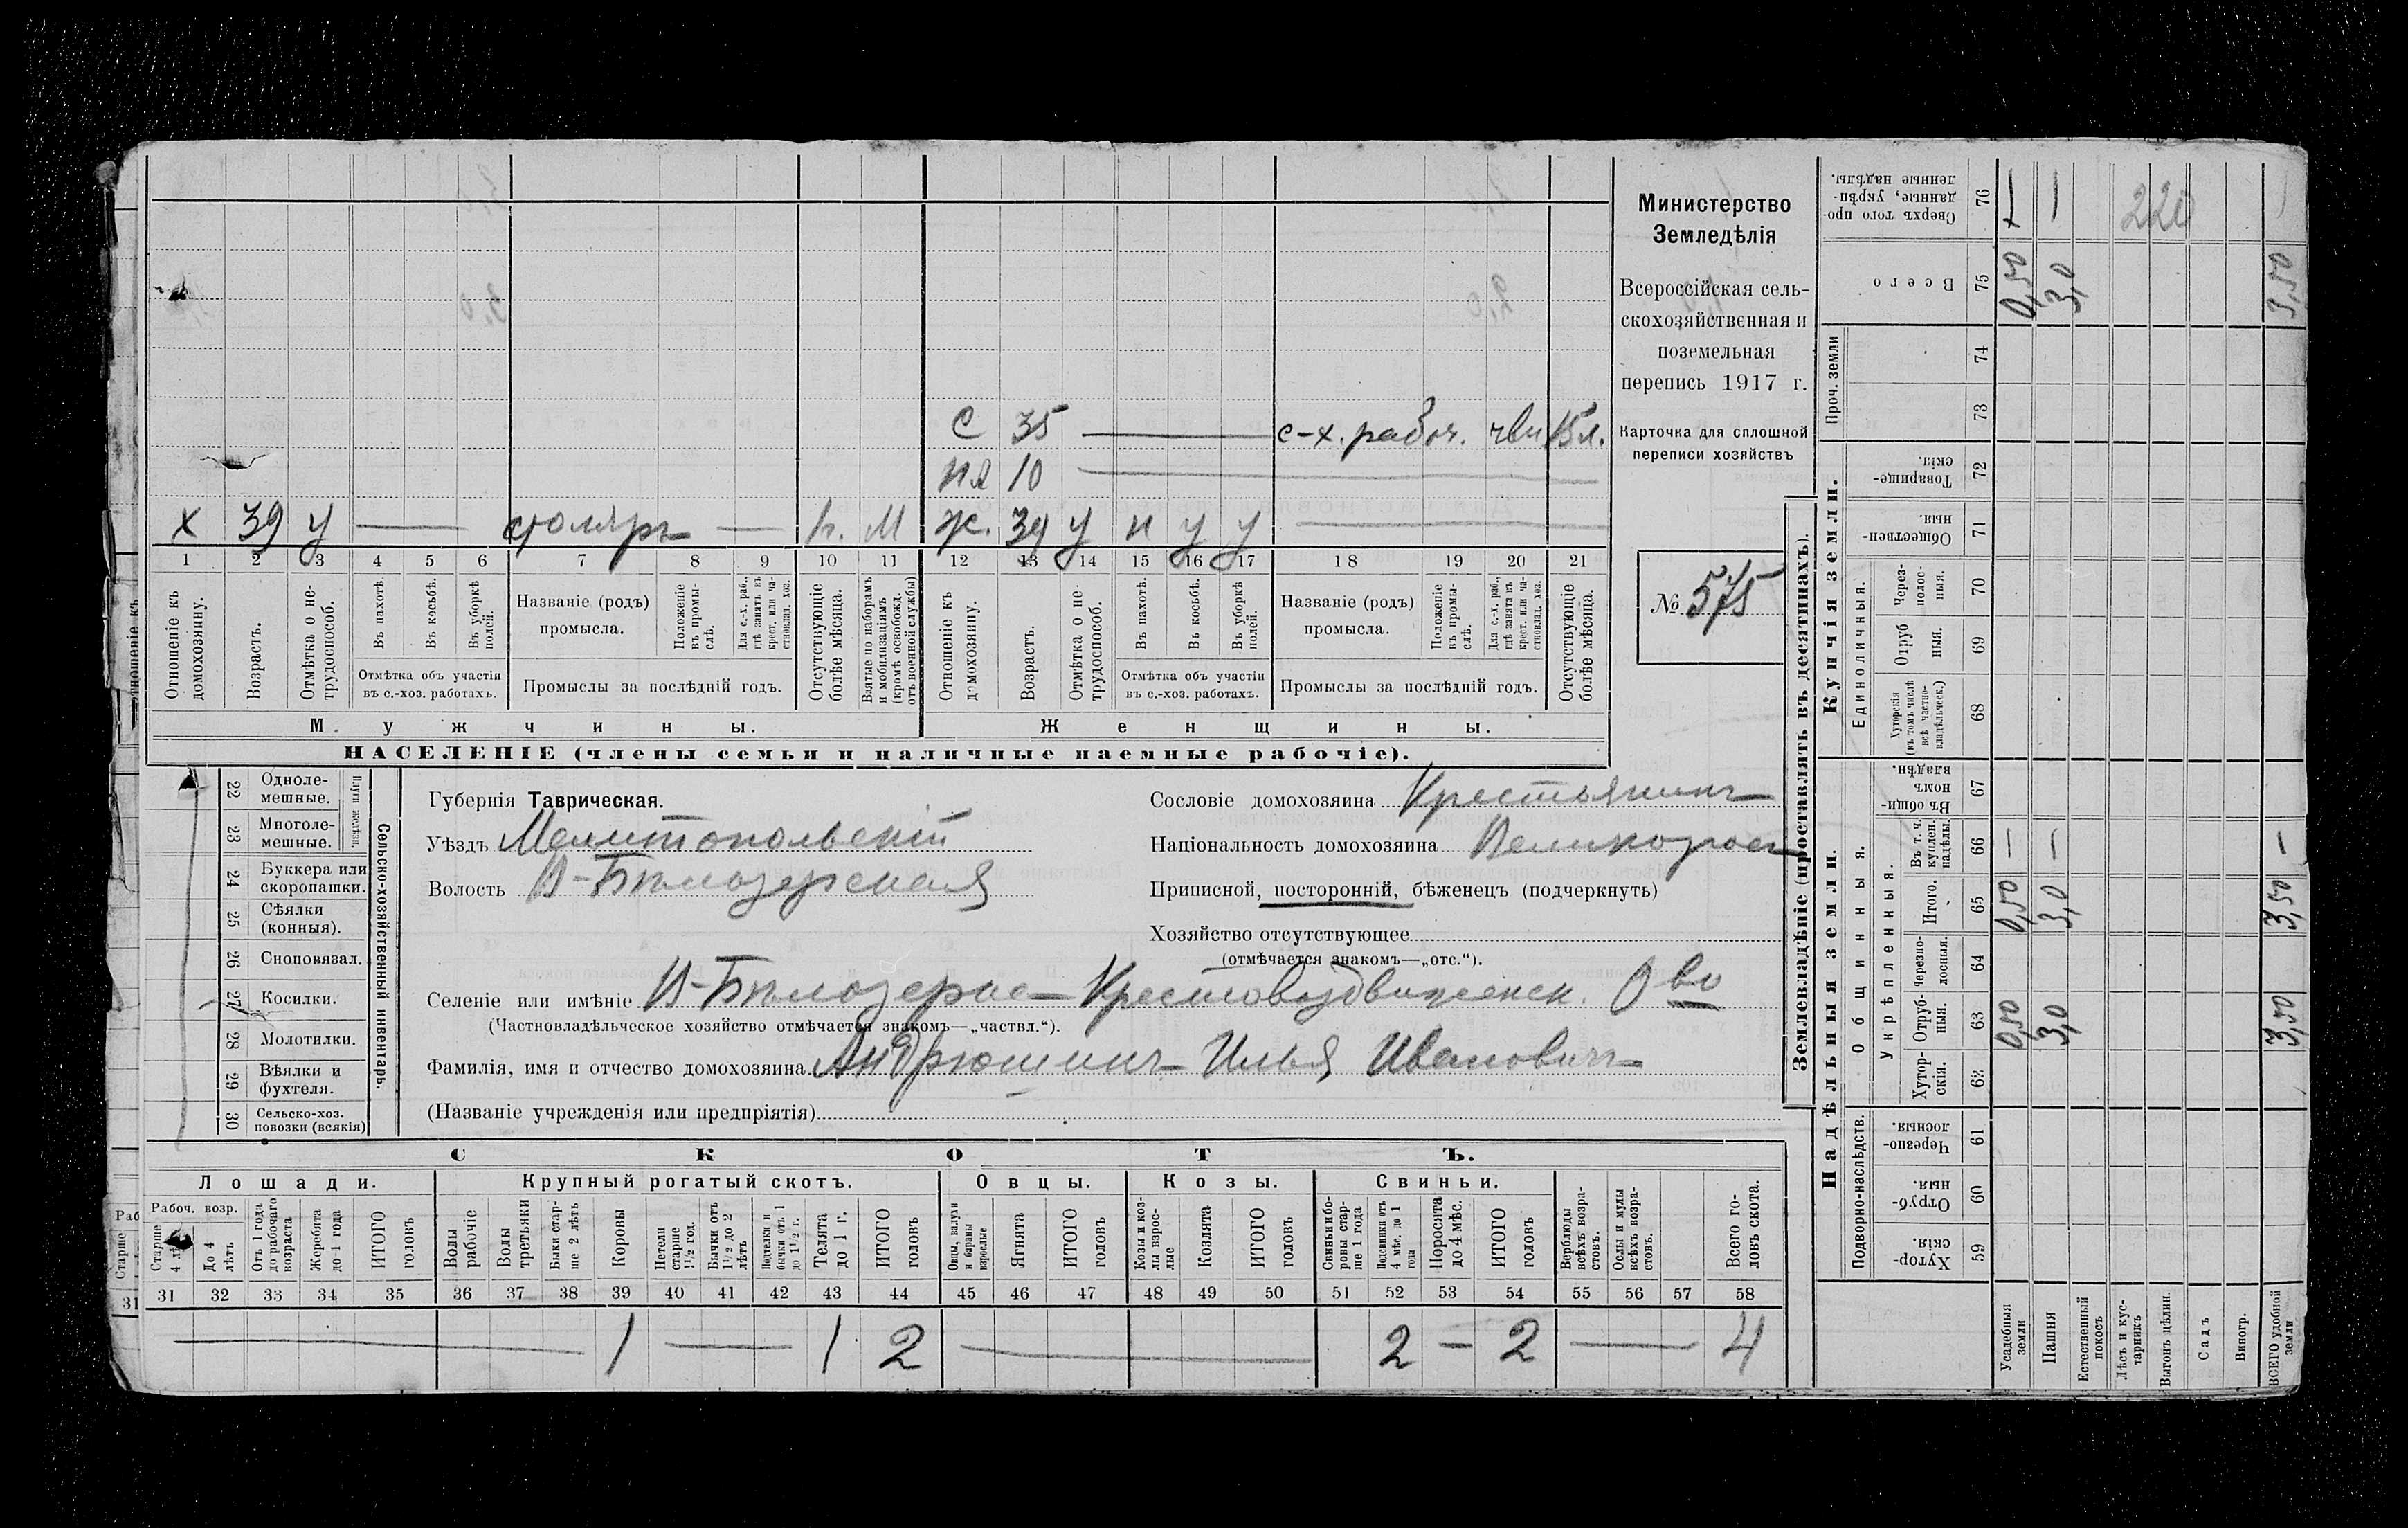 Министерство
Земледѣлія
Всероссійская сель-
скохозяйственная и
поземельная
перепись 1917 г.
Карточка для сплошной
переписи хозяйствъ
№ 575
С 35 — с-х. рабоч. 15 л.
10 —
Х 39 у — столяръ — М Ж. 39 у н у у —
1 2 3 4 5 6 7 8 9 10 11 12 13 14 15 16 17 18 19 20 21
Отношеніе къ домохозяину.
Возрастъ.
Отмѣтка о не-трудоспособ.
Въ пахотѣ.
Въ косьбѣ.
Въ уборкѣ полей.
Отмѣтка объ участіи
въ с.-хоз. работахъ.
Названіе (родъ)
промысла.
Положеніе въ промы-слѣ.
Для с.-х. раб., гдѣ занятъ въ крест. или ча-стновлад. хоз.
Промыслы за послѣдній годъ.
Отсутствующіе болѣе мѣсяца.
Взятые по наборамъ и мобилизаціямъ (кромѣ освобожд. отъ военной службы)
Отношеніе къ домохозяину.
Возрастъ.
Отмѣтка о не-трудоспособ.
Въ пахотѣ.
Въ косьбѣ.
Въ уборкѣ полей.
Отмѣтка объ участіи
въ с.-хоз. работахъ.
Названіе (родъ)
промысла.
Положеніе въ промы-слѣ.
Для с.-х. раб., гдѣ занята въ крест. или ча-стновлад. хоз.
Промыслы за послѣдній годъ.
Отсутствующіе болѣе мѣсяца.
Мужчины.
Женщины.
НАСЕЛЕНІЕ (члены семьи и наличные наемные рабочіе).
Сельско-хозяйственный инвентарь.
Плуги желѣзн.
22 Одноле-мешные.
23 Многоле-мешные.
24 Буккера или скоропашки.
25 Сѣялки (конныя).
26 Сноповязал.
27 Косилки.
28 Молотилки.
29 Вѣялки и фухтеля.
30 Сельско-хоз. повозки (всякія)
Губернія Таврическая.
Уѣздъ Мелитопольскій
Волость В-Бѣлозерская
Сословіе домохозяина Крестьянинъ
Національность домохозяина Великоросъ
Приписной, посторонній, бѣженецъ (подчеркнуть)
Хозяйство отсутствующее
(отмѣчается знакомъ—„отс.“).
Селеніе или имѣніе В-Бѣлозерка Крестовоздвиженск. О во
(Частновладѣльческое хозяйство отмѣчается знакомъ—„частвл.“).
Фамилія, имя и отчество домохозяина Андрюшинъ Илья Ивановичъ
(Названіе учрежденія или предпріятія)
СКОТЪ.
Лошади.
Крупный рогатый скотъ.
Овцы.
Козы.
Свиньи.
Рабоч. возр.
Старше 4 лѣтъ
До 4 лѣтъ
Отъ 1 года до рабочаго возраста
Жеребята до 1 года
ИТОГО головъ
Волы рабочіе
Волы третьяки
Быки стар-ше 2 лѣтъ
Коровы
Нетели старше 1½ год.
Бычки отъ 1½ до 2 лѣтъ
Подтелки и бычки отъ 1 до 1½ г.
Телята до 1 г.
ИТОГО головъ
Овцы, валухи и бараны взрослые
Ягнята
ИТОГО головъ
Козы и коз-лы взрос-лые
Козлята
ИТОГО головъ
Свиньи и бо-ровы стар-ше 1 года
Подсвинки отъ 4 мѣс. до 1 года
Поросята до 4 мѣс.
ИТОГО головъ
Верблюды всѣхъ возра-стовъ.
Ослы и мулы всѣхъ возра-стовъ.
Всего го-ловъ скота.
31 32 33 34 35 36 37 38 39 40 41 42 43 44 45 46 47 48 49 50 51 52 53 54 55 56 57 58
— 1 — 1 2 — 2 — 2 — 4
Землевладѣніе (проставлять въ десятинахъ).
Надѣльныя земли.
Купчія земли.
Проч. земли
Подворно-наслѣдств.
Общинныя.
Укрѣпленныя.
Единоличныя.
Хутор-скія. 59
Отруб-ныя. 60
Черезпо-лосныя. 61
Хутор-скія. 62
Отруб-ныя. 63 0,50 3,0 3,50
Черезпо-лосныя. 64
Итого. 65 0,50 3,0 3,50
Въ т. ч. куплен. надѣлы. 66 — — —
Въ общи-номъ владѣн. 67
Хуторскія (въ томъ числѣ всѣ частно-владѣльческ.) 68
Отруб ныя. 69
Через-полос-ныя. 70
Обществен-ныя. 71
Товарище-скія. 72
73
74
Всего 75 0,50 3,0 3,50
Сверхъ того про-данные, укрѣп-ленные надѣлы. 76 — — 220
Усадебныя земли
Пашня
Естественный покосъ
Лѣсъ и кус-тарникъ
Выгонъ цѣлин.
Садъ
Виногр.
ВСЕГО удобной земли